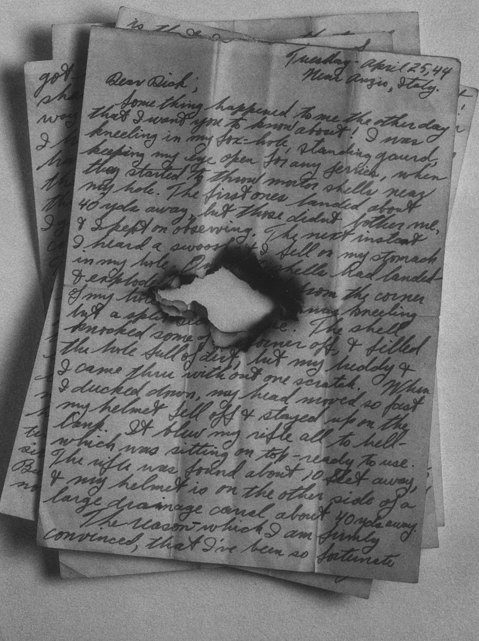 Tuesday - April 25, 44
Near Anzio, Italy.
Dear Dick;
Something happened to me the other day
that I want you to know about! I was
kneeling in my fox-hole, standing guard,
keeping my eye open for any Jerries, when
they started to throw mortar shells near
my hole. The first ones landed about
40 yds away, but those didnt bother me,
& I kept on observing. The next instant
I heard a swoosh & I fell on my stomach
in my hole. shells had landed
& exploded from the corner
of my hole was kneeling
but a split The shell
knocked some of corner off, & filled
the hole full of dirt, but my buddy &
I came thru without one scratch. When
I ducked down, my head moved so fast
my helmet fell off & stayed up on the
bank. It blew my rifle all to hell -
which was sitting on top - ready to use.
The rifle was found about 10 feet away,
& my helmet is on the other side of a
large drainage canal about 40 yds away.
The reason which I am firmly
convinced, that I've been so fortunate